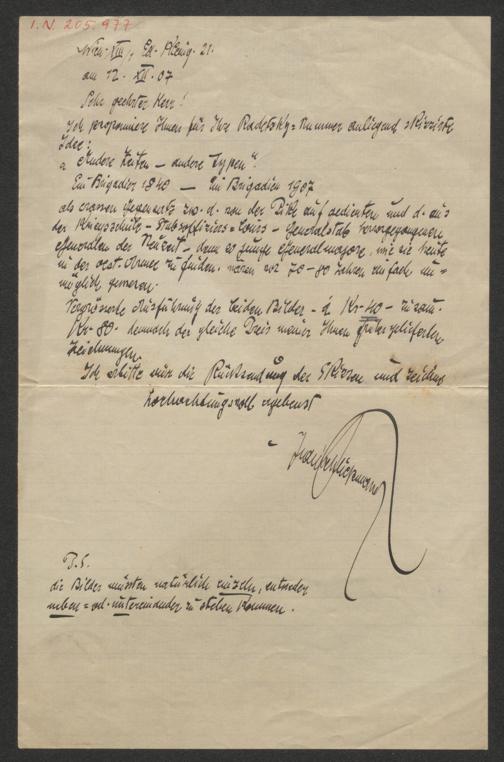 I.N. 205.977
Wien XIII, Ed. Kleing. 21.
am 12. XII. 07
Sehr geehrter Herr!
Ich proponiere Ihnen für Ihre Radetzky=Nummer anliegend skizzirte
Idee:
„Andere Zeiten – andere Typen“.
Ein Brigadier 1840 — Ein Brigadier 1907
als crassen Gegensatz zw. d. von der Pike auf gedienten und d. aus
der Kriegsschule – Stabsoffiziers=Cours – Generalstab hervorgegangenen
Generalen der Neuzeit – denn so junge Generalmajore, wie sie heute
in der oest. Armee zu finden, waren vor 70–80 Jahren einfach un=
möglich gewesen.
Vergrösserte Ausführung der beiden Bilder – à Kr 40 – zusam.
Kr. 80 – demnach der gleiche Preis meiner Ihnen früher gelieferten
Zeichnungen.
Ich bitte um die Rücksendung der Skizzen und zeichne
hochachtungsvoll ergebenst
P.S.
die Bilder müssten natürlich einzeln, entweder
neben= od. untereinander zu stehen kommen.